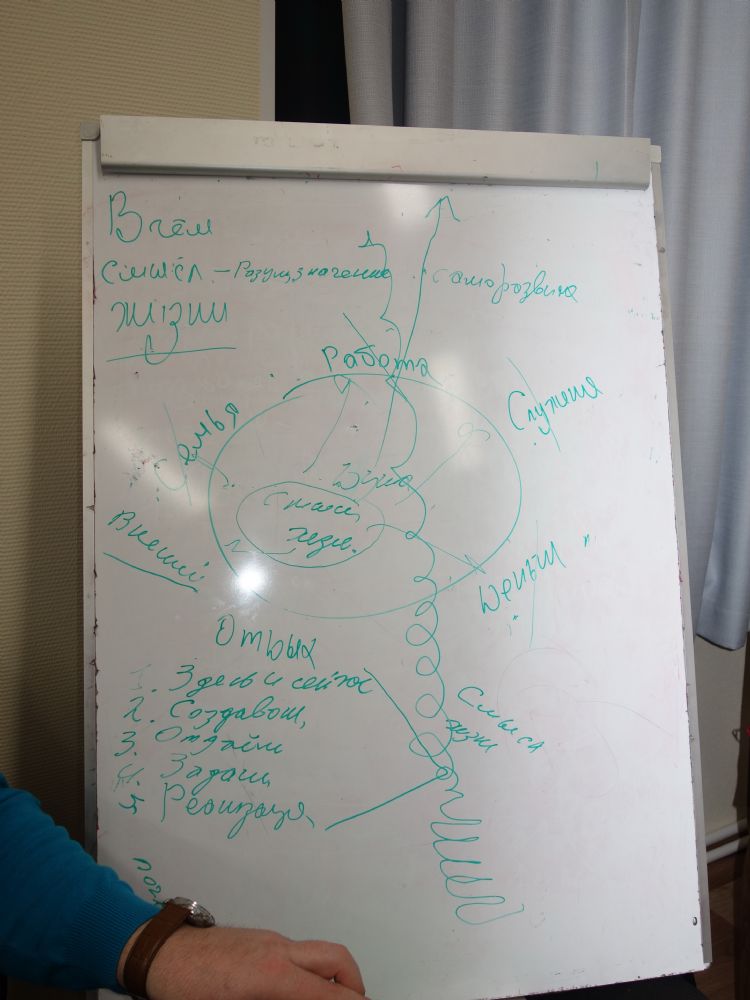 В чём
смысл - Разум, значение
жизни
саморазвит
Работа
Семья
Служение
Смысл
жизн.
Внешний
Деньги
Отдых
1. Здесь и сейчас
2. Создавать,
3. Отдайт
4. Задачи
5 Реализация
Смысл
жизни